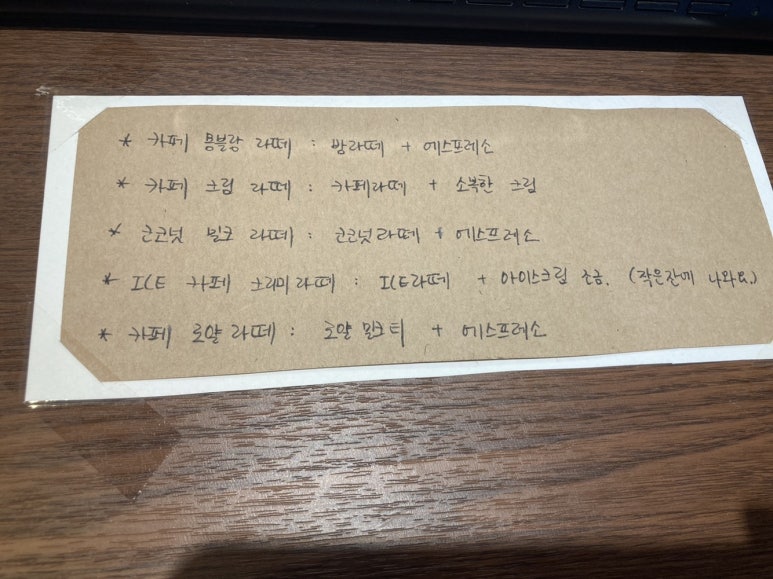 * 카페 몽블랑 라떼 : 밤라떼 + 에스프레소
* 카페 크림 라떼 : 카페라떼 + 소복한 크림
* 코코넛 밀크 라떼 : 코코넛라떼 + 에스프레소
* ICE 카페 크리미라떼 : ICE라떼 + 아이스크림 조금. (작은잔에 나와요.)
* 카페 로얄 라떼 : 로얄 밀크티 + 에스프레소